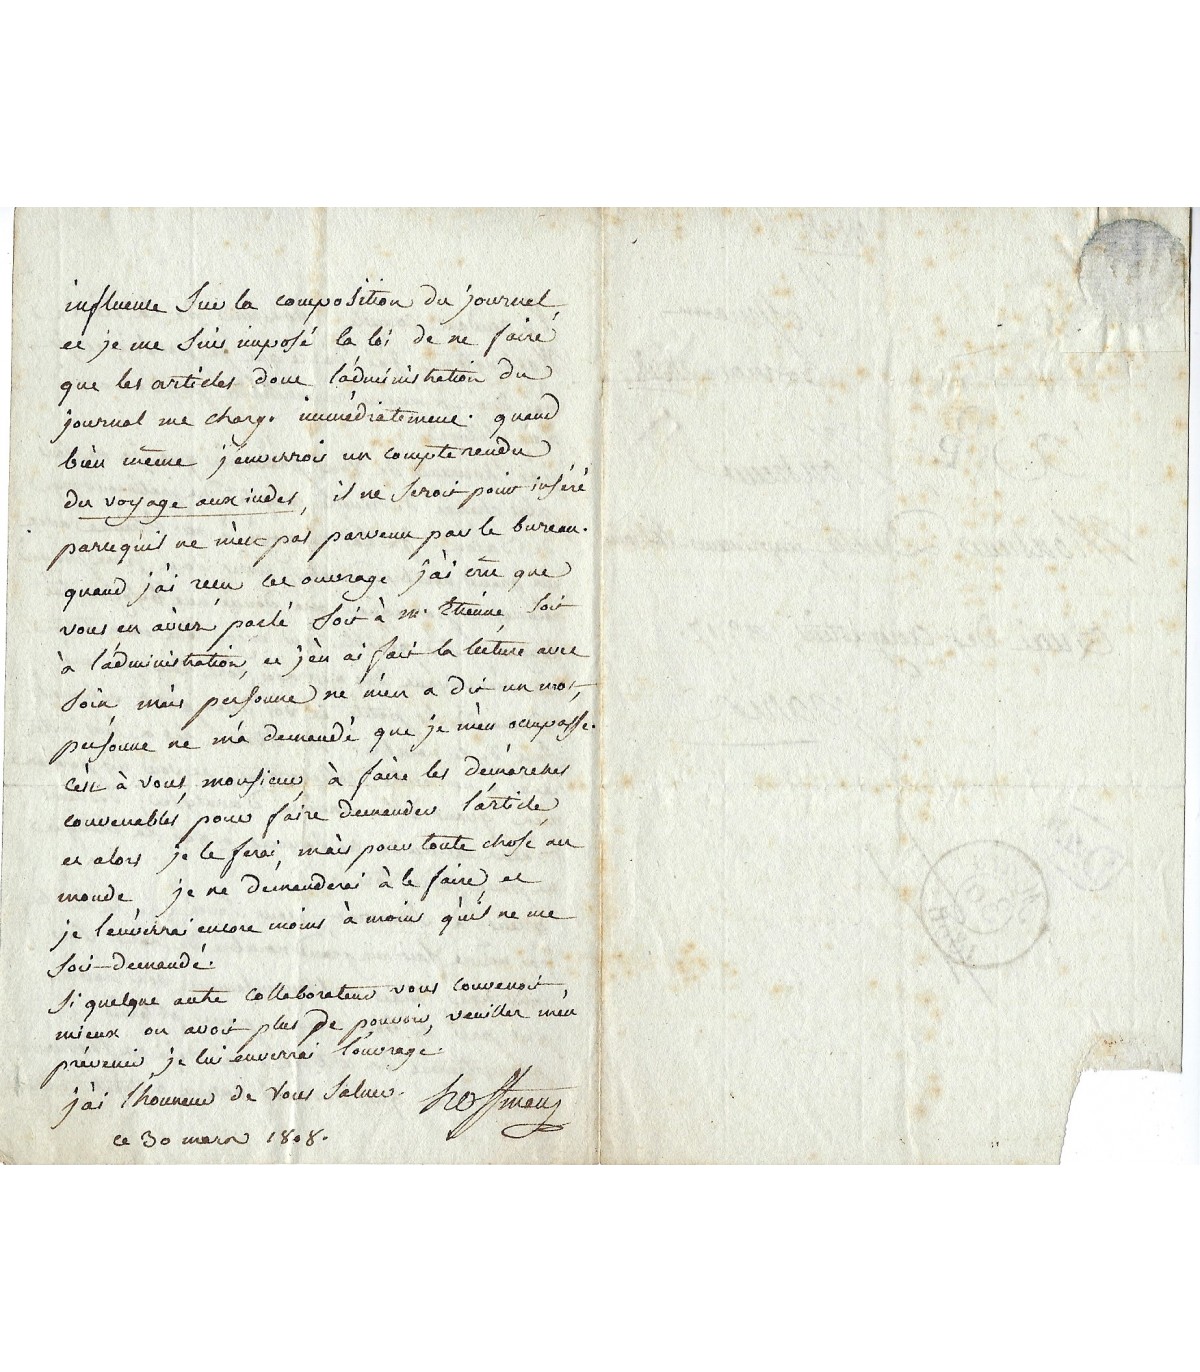 influence sur la composition du journal,
et je me suis imposé la loi de ne faire
que les articles dont l'administration du
journal me charge immédiatement. quand
bien même j'enverrois un compte rendu
du voyage aux indes, il ne seroit point inséré
parcequ'il ne m'est pas parvenu par le bureau.
quand j'ai recu cet ouvrage j'ai crû que
vous en aviez parlé soit à mr. Etienne, soit
à l'administration, et j'en ai fait la lecture avec
soin mais personne ne m'en a dit un mot,
personne ne m'a demandé que je m'en occupasse.
c'est à vous, monsieur, à faire les démarches
convenables pour faire demander l'article,
et alors je le ferai, mais pour toute chose au
monde je ne demanderai à le faire, et
je l'enverrai encore moins à moins qu'il ne me
soit demandé.
si quelque autre collaborateur vous convenoit
mieux ou avoit plus de pouvoir, veuillez m'en
prévenir, je lui enverrai l'ouvrage.
j'ai l'honneur de vous saluer. hoffmann
ce 30 mars 1808.